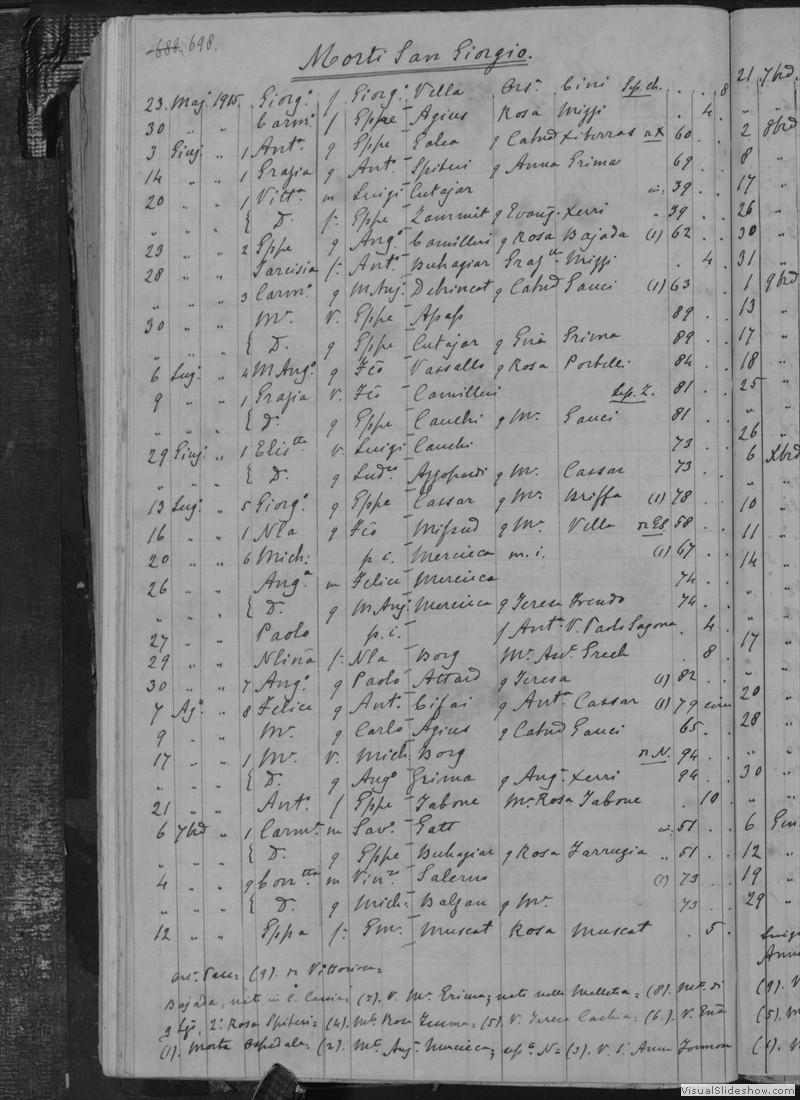 688. 698.
Morti San Giorgio.
23 Maj. 1915 Giorg.o f Giorg.o Villa Ors.a Cini Sep. ch. 8
30 " " Carm.o f Eppe Agius Rosa Mizzi 4
3 Giuj. " 1 Ant.a q Eppe Galea q Catud Xiberras n X 60
14 " " 1 Grazia q Ant.o Spiteri q Anna Grima 69
20 " " 1 Vitt.a m Luigi Cutajar 39
" " " { D. f. Eppe Zammit q Evang. Xerri " 39
23 " " 2 Eppe q Ang.o Camilleri q Rosa Bajada (1) 62
28 " " Tarcisia f. Ant.o Buhagiar Graz.lla Mizzi 4
" " " 3 Carm.o q M Anj. Debrincat q Catud Gauci (1) 63
30 " " M.a V. Eppe Apap 89
" " " { D. q Eppe Cutajar q Grima 89
6 Luj. " 4 M Ang.o q Fco Vassallo q Rosa Portelli 84
9 " " 1 Grazia V. Fco Camilleri Sep. Z. 81
" " " { D. q Eppe Cauchi q M.a Gauci 81
29 Giuj. " 1 Elis.tta V. Luigi Cauchi 73
" " " { D. q Lud.co Azzopardi q M.a Cassar 73
13 Luj. " 5 Giorg.o q Eppe Cassar q M.a Briffa (1) 78
16 " " 1 Nla q Fco Mifsud q M.a Villa 58
20 " " 6 Mich: p. i. Mercieca m. i. (1) 67
26 " " Ang.a m Felice Mercieca 74
" " " { D. q M Anj. Mercieca q Teresa Frendo 74
27 " " Paolo p. i. f Ant.a V. Paolo Sagona 4
29 " " f. Nla Borg M.a Ass.a Grech 8
30 " " 7 Ang.o q Paolo Attard q Teresa (1) 82
7 Ag.o " 8 Felice q Ant.o Bifai q Ant.a Cassar (1) 79
9 " " M.a q Carlo Agius q Catud Gauci 65
17 " " 1 M.a V. Mich. Borg n N. 94
" " " { D. q Ang.o Grima q Ang.a Xerri 94
21 " " Ant.o f Eppe Tabone M.a Rosa Tabone 10
6 7brd " 1 Carm.a m Sav.o Gatt 51
" " " { D. q Eppe Buhagiar q Rosa Farrugia " 51
4 " " 9 Conc.tta m Vin.zo Salerno (1) 73
" " " { D. q Mich: Balzan q M.a 73
12 " " Eppa f. Em.le Muscat Rosa Muscat 5
(9). n Vittoriosa=
Bajada, nata in (7). V. M.a Grima; nato nella Melleha= (8). M.to di
q Luj. 2.a Rosa Spiteri= (4). M.to Rosa (5). V. Teresa Cachia= (6.). V.
(1). Morta Ospedale= (2). M.to Anj. Mercieca; N= (3). V. Anna
21 7brd
" "
2 8brd
8 "
17 "
26 "
30 "
31 "
1 9brd
13 "
17 "
18 "
25 "
" "
26 "
6 Xbrd
" "
10 "
11 "
14 "
" "
" "
17 "
" "
20 "
28 "
" "
30 "
" "
6 Gen
12 "
19 "
29 "
Luigi
Anna
(9). V
(5). M
(1). V
VisualSlideshow.com